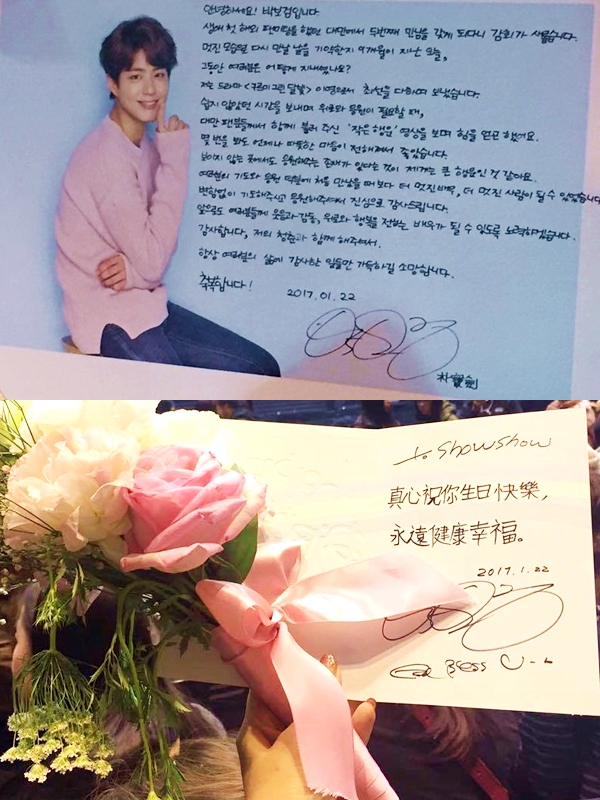 안녕하세요! 박보검입니다.
생애 첫 해외 팬미팅을 했던 대만에서 두번째 만남을 갖게 되다니 감회가 새롭습니다.
멋진 모습으로 다시 만날 날을 기약한지 9개월이 지난 오늘,
그동안 여러분은 어떻게 지내셨나요?
저는 드라마 <구르미 그린 달빛> 이영으로서 최선을 다하며 보냈습니다.
쉽지 않았던 시간을 보내며 위로와 응원이 필요할 때,
대만 팬분들께서 함께 불러 주신 '작은 행운' 영상을 보며 힘을 얻곤 했어요.
몇 번을 봐도 언제나 따뜻한 마음이 전해져서 좋았습니다.
보이지 않는 곳에서도 응원해주는 존재가 있다는 것이 제게는 큰 행운인 것 같아요.
여러분의 기도와 응원 덕분에 처음 만났을 때 보다 더 멋진 배우, 더 멋진 사람이 될 수 있었습니다
변함없이 기도해주시고 응원해주셔서 진심으로 감사드립니다.
앞으로도 여러분들께 웃음과 감동, 위로와 행복을 전하는 배우가 될 수 있도록 노력하겠습니다.
감사합니다, 저의 청춘과 함께 해주셔서.
항상 여러분의 삶에 감사한 일들만 가득하길 소망합니다.
축복합니다!
2017.01.22
朴寶劍
to. showshow
真心祝你生日快樂,
永遠健康幸福。
2017.1.22
God Bless U